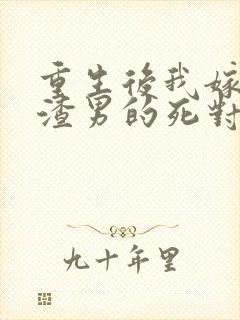 重生後我嫁
渣男的死對
九十年里